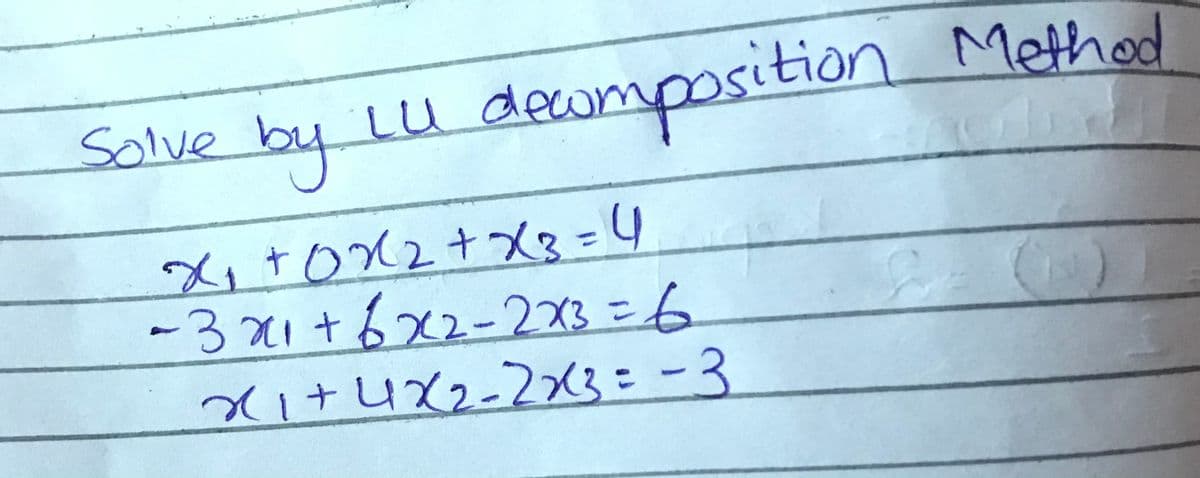 Solve by LU decomposition Method
x₁ + 0x₂ + x₃ = 4
-3x₁ + 6x₂ - 2x₃ = 6
x₁ + 4x₂ - 2x₃ = -3